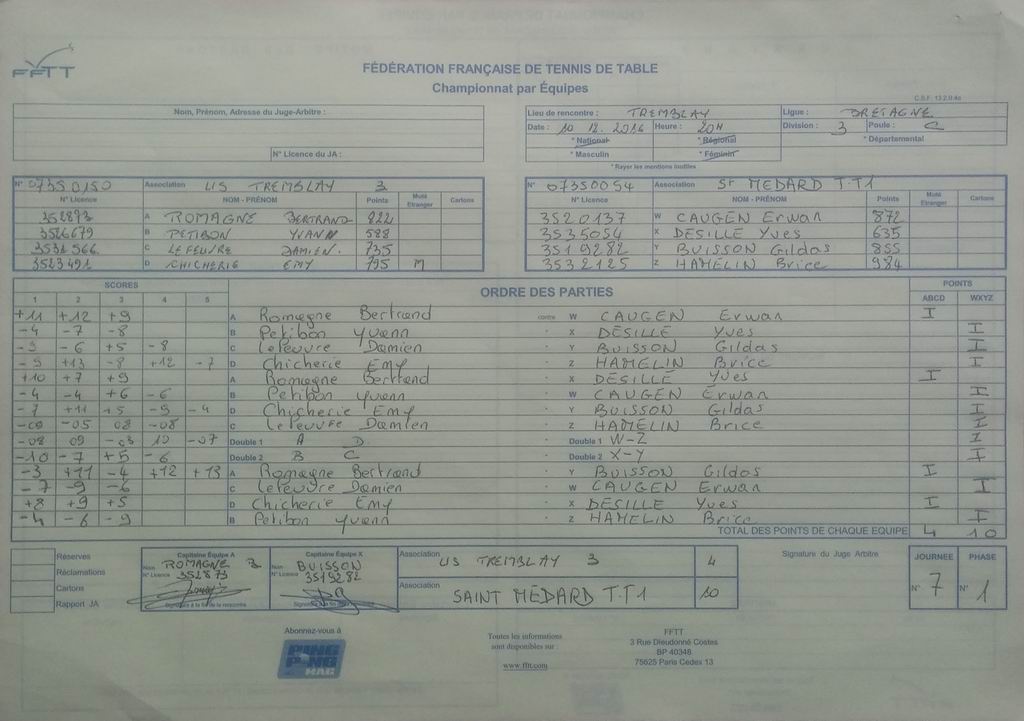 FFTT
FÉDÉRATION FRANÇAISE DE TENNIS DE TABLE
Championnat par Équipes
C.S.F. 13.2.0.4a
Nom, Prénom, Adresse du Juge-Arbitre :
N° Licence du JA :
Lieu de rencontre : TREMBLAY Ligue : BRETAGNE
Date : 10 12. 2016 Heure : 20H Division : 3 Poule : C
* National * Régional * Départemental
* Masculin * Féminin
* Rayer les mentions inutiles
N° 07350150 Association US TREMBLAY 3
N° Licence NOM - PRÉNOM Points Muté Etranger Cartons
352873 A ROMAGNE BERTRAND 822
3526679 B PETIBON YVANN 588
3531566 C LEFEUVRE DAMIEN. 735
3523491 D CHICHERIE EMY 795 M
N° 07350054 Association St MEDARD T.T1
N° Licence NOM - PRÉNOM Points Muté Etranger Cartons
3520137 W CAUGEN Erwan 872
3535054 X DESILLE Yves 635
3519282 Y BUISSON Gildas 855
3532125 Z HAMELIN Brice 984
SCORES ORDRE DES PARTIES POINTS
1 2 3 4 5 ABCD WXYZ
+11 +12 +9 A Romagne Bertrand contre W CAUGEN Erwan I
-4 -7 -8 B Petibon Yvann - X DESILLE Yves I
-9 -6 +5 -8 C Lefeuvre Damien - Y BUISSON Gildas I
-9 +13 -8 +12 -7 D Chicherie Emy - Z HAMELIN Brice I
+10 +7 +9 A Romagne Bertrand - X DESILLE Yves I
-4 -4 +6 -6 B Petibon Yvann - W CAUGEN Erwan I
-7 +11 +5 -9 -4 D Chicherie Emy - Y BUISSON Gildas I
-09 -05 08 -08 C Lefeuvre Damien - Z HAMELIN Brice I
-08 09 -03 10 -07 Double 1 A D - Double 1 W-Z I
-10 -7 +5 -6 Double 2 B C - Double 2 X-Y I
-3 +11 -4 +12 +13 A Romagne Bertrand - Y BUISSON Gildas I
-7 -9 -6 C Lefeuvre Damien - W CAUGEN Erwan I
+8 +9 +5 D Chicherie Emy - X DESILLE Yves I
-4 -6 -9 B Petibon Yvann - Z HAMELIN Brice I
TOTAL DES POINTS DE CHAQUE EQUIPE 4 10
Réserves
Réclamations
Cartons
Rapport JA
Capitaine Équipe A
Nom ROMAGNE B
N° Licence 352873
Signature à la fin de la rencontre
Capitaine Équipe X
Nom BUISSON
N° Licence 3519282
Association US TREMBLAY 3 4
Association SAINT MEDARD T.T1 10
Signature du Juge Arbitre
JOURNEE PHASE
N° 7 N° 1
Abonnez-vous à
PING PONG MAG
Toutes les informations
sont disponibles sur :
www.fftt.com
FFTT
3 Rue Dieudonné Costes
BP 40348
75625 Paris Cedex 13